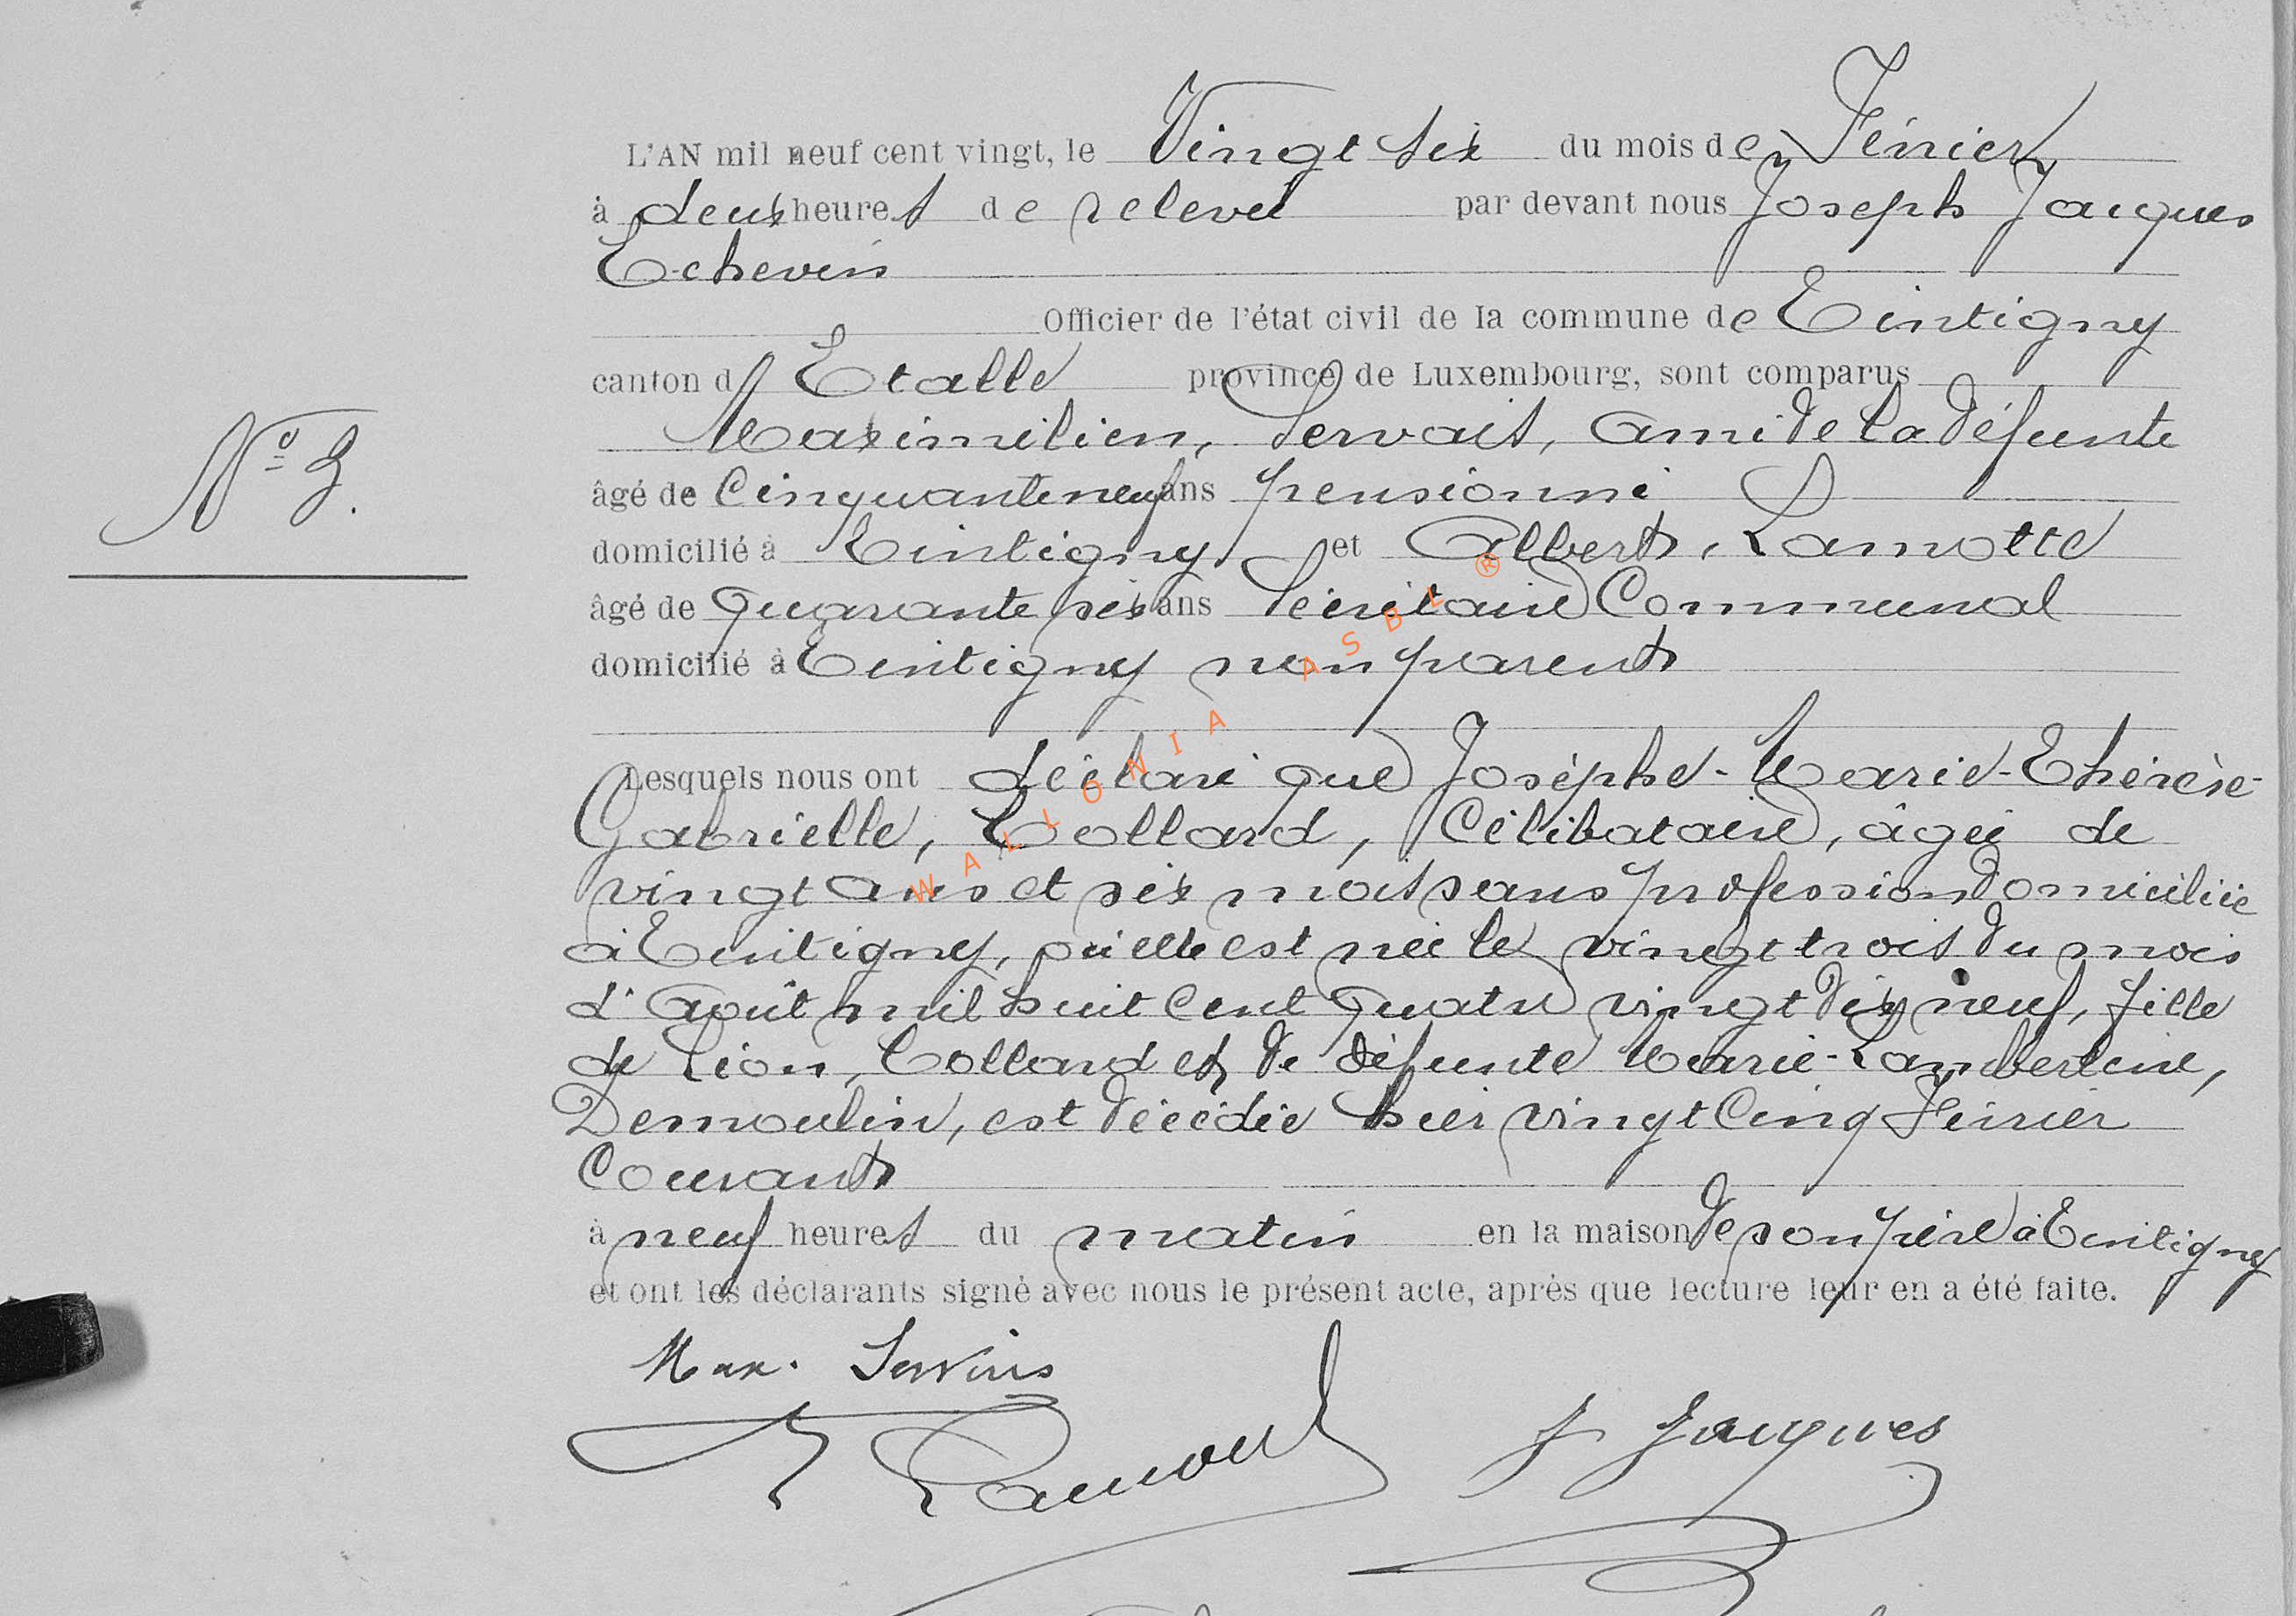 L'AN mil neuf cent vingt, le Vingt six du mois de Février
à deux heures de relevée par devant nous Joseph Jacques
Echevin
Officier de l'état civil de la commune de Tintigny
canton d'Etalle province de Luxembourg, sont comparus
Maximilien, Servais, ami de la défunte
âgé de Cinquante neuf ans pensionné
domicilié à Tintigny et Albert, Lamotte
âgé de quarante six ans Secrétaire Communal
domicilié à Tintigny non parent
Lesquels nous ont déclaré que Joséphe-Marie-Thérèse-
Gabrielle, Collard, Célibataire, âgée de
vingt ans et six mois sans profession domiciliée
à Tintigny, où elle est née le vingt trois du mois
d'août mil huit cent quatre vingt dix neuf, fille
de Léon, Collard et de défunte Marie-Lambertine,
Demoulin, est décédée hier vingt Cinq Février
Courant
à neuf heures du matin en la maison de son père à Tintigny
et ont les déclarants signé avec nous le présent acte, après que lecture leur en a été faite.
Max. Servais
Lamotte J Jacques
WALLONIA ASBL ®